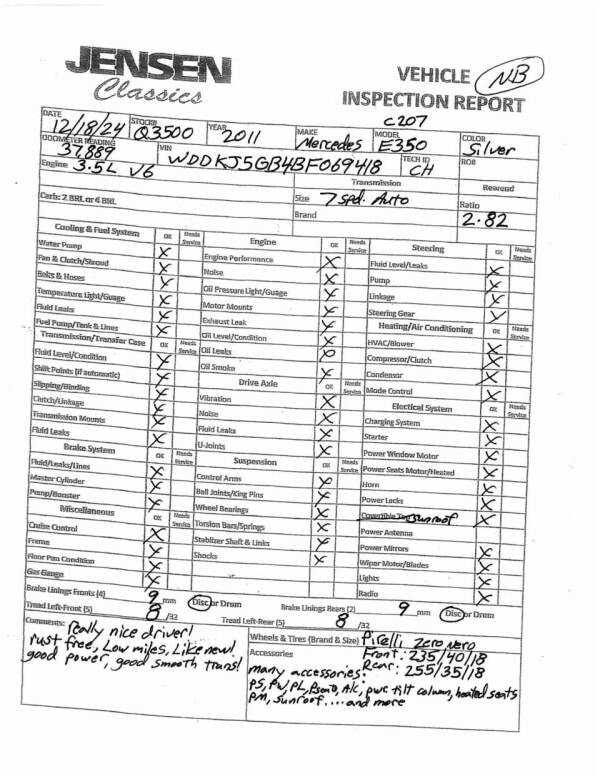 JENSEN
Classics
VEHICLE NB
INSPECTION REPORT
C207
DATE 12/18/24 STOCK# Q3500 YEAR 2011 MAKE Mercedes MODEL E350 COLOR Silver
ODOMETER READING 37,889 VIN WDDKJ5GB4BF069418 TECH ID CH RO#
Engine 3.5L V6 Transmission Rearend
Carb: 2 BRL or 4 BRL Size 7 spd. Auto Ratio 2.82
Brand
Cooling & Fuel System OK Needs Service Engine OK Needs Service Steering OK Needs Service
Water Pump X Engine Performance X Fluid Level/Leaks X
Fan & Clutch/Shroud X Noise X Pump X
Belts & Hoses X Oil Pressure Light/Guage X Linkage X
Temperature Light/Guage X Motor Mounts X Steering Gear X
Fluid Leaks X Exhaust Leak X Heating/Air Conditioning OK Needs Service
Fuel Pump/Tank & Lines X Oil Level/Condition X HVAC/Blower X
Transmission/Transfer Case OK Needs Service Oil Leaks Compressor/Clutch X
Fluid Level/Condition X Oil Smoke X Condensor X
Shift Points (if automatic) X Drive Axle OK Needs Service Mode Control X
Slipping/Binding X Vibration X Electrical System OK Needs Service
Clutch/Linkage X Noise X Charging System X
Transmission Mounts X Fluid Leaks X Starter X
Fluid Leaks X U-Joints X Power Window Motor X
Brake System OK Needs Service Suspension OK Needs Service Power Seats Motor/Heated X
Fluid/Leaks/Lines X Control Arms X Horn X
Master Cylinder X Ball Joints/King Pins X Power Locks X
Pump/Booster X Wheel Bearings X Covertible Top sunroof X
Miscellaneous OK Needs Service Torsion Bars/Springs X Power Antenna
Cruise Control X Stablizer Shaft & Links X Power Mirrors X
Frame X Shocks X Wiper Motor/Blades X
Floor Pan Condition X Lights X
Gas Gauge X Radio X
Brake Linings Fronts (4) 9 mm Disc or Drum Brake Linings Rears (2) 9 mm Disc or Drum
Tread Left-Front (5) 8 /32 Tread Left-Rear (5) 8 /32
Comments: Really nice driver! Wheels & Tires (Brand & Size) Pirelli Zero Nero
rust free, Low miles, Like new! Front: 235/40/18
good power, good smooth trans! Accessories Rear: 255/35/18
many accessories:
PS, PW, PL, Pseats, A/c, pwr tilt column, heated seats
PM, sunroof....and more